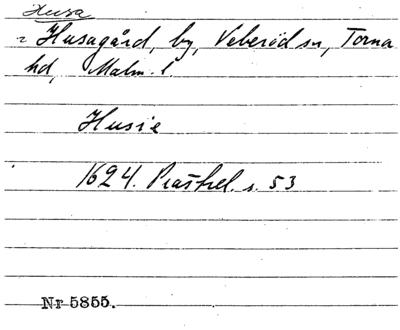 Husa
= Husagård, by, Veberöd sn, Torna
hd, Malm. l.
Husie
1624. Prästrel. s. 53
Nr 5855.